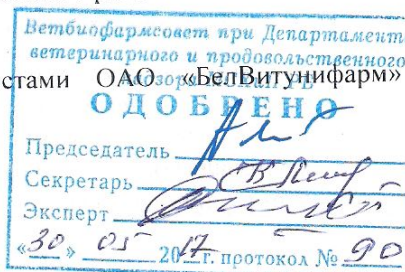 Ветбиофармсовет при Департамент
ветеринарного и продовольственного
стами ОАО «БелВитунифарм»
надзора
ОДОБРЕНО
Председатель
Секретарь
Эксперт
«30» 05 2017 г. протокол № 90